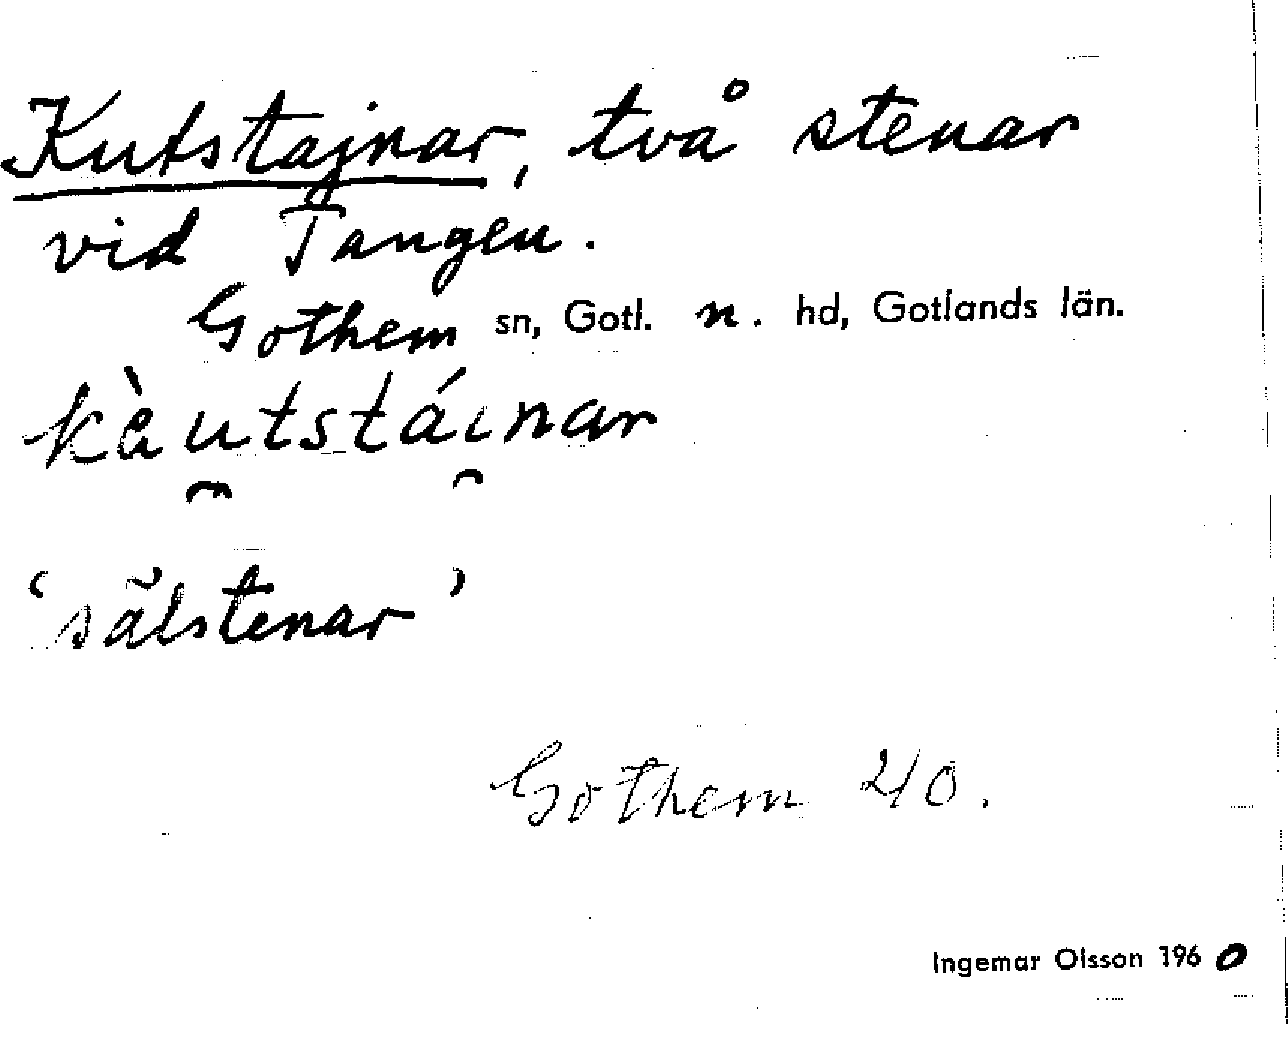 Kutstajnar, två stenar
vid Tangen.
Gothem sn, Gotl. n. hd, Gotlands län.
kàu̯tstái̯nar
‘sälstenar’
Gothem 40.
Ingemar Olsson 1960